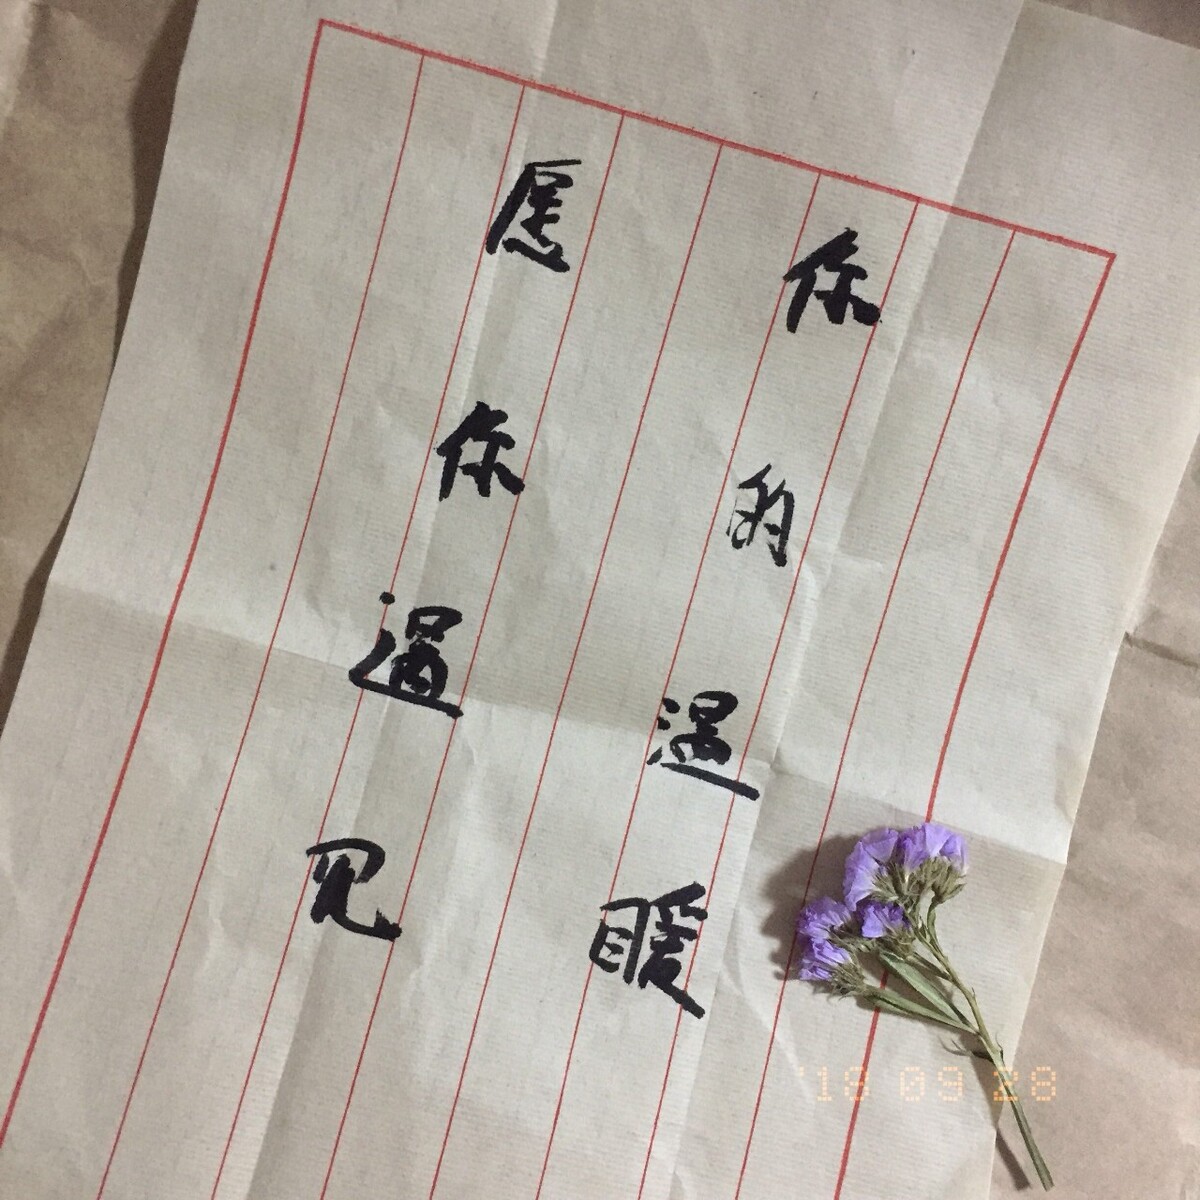 你的温暖
愿你遇见
'18 09 28